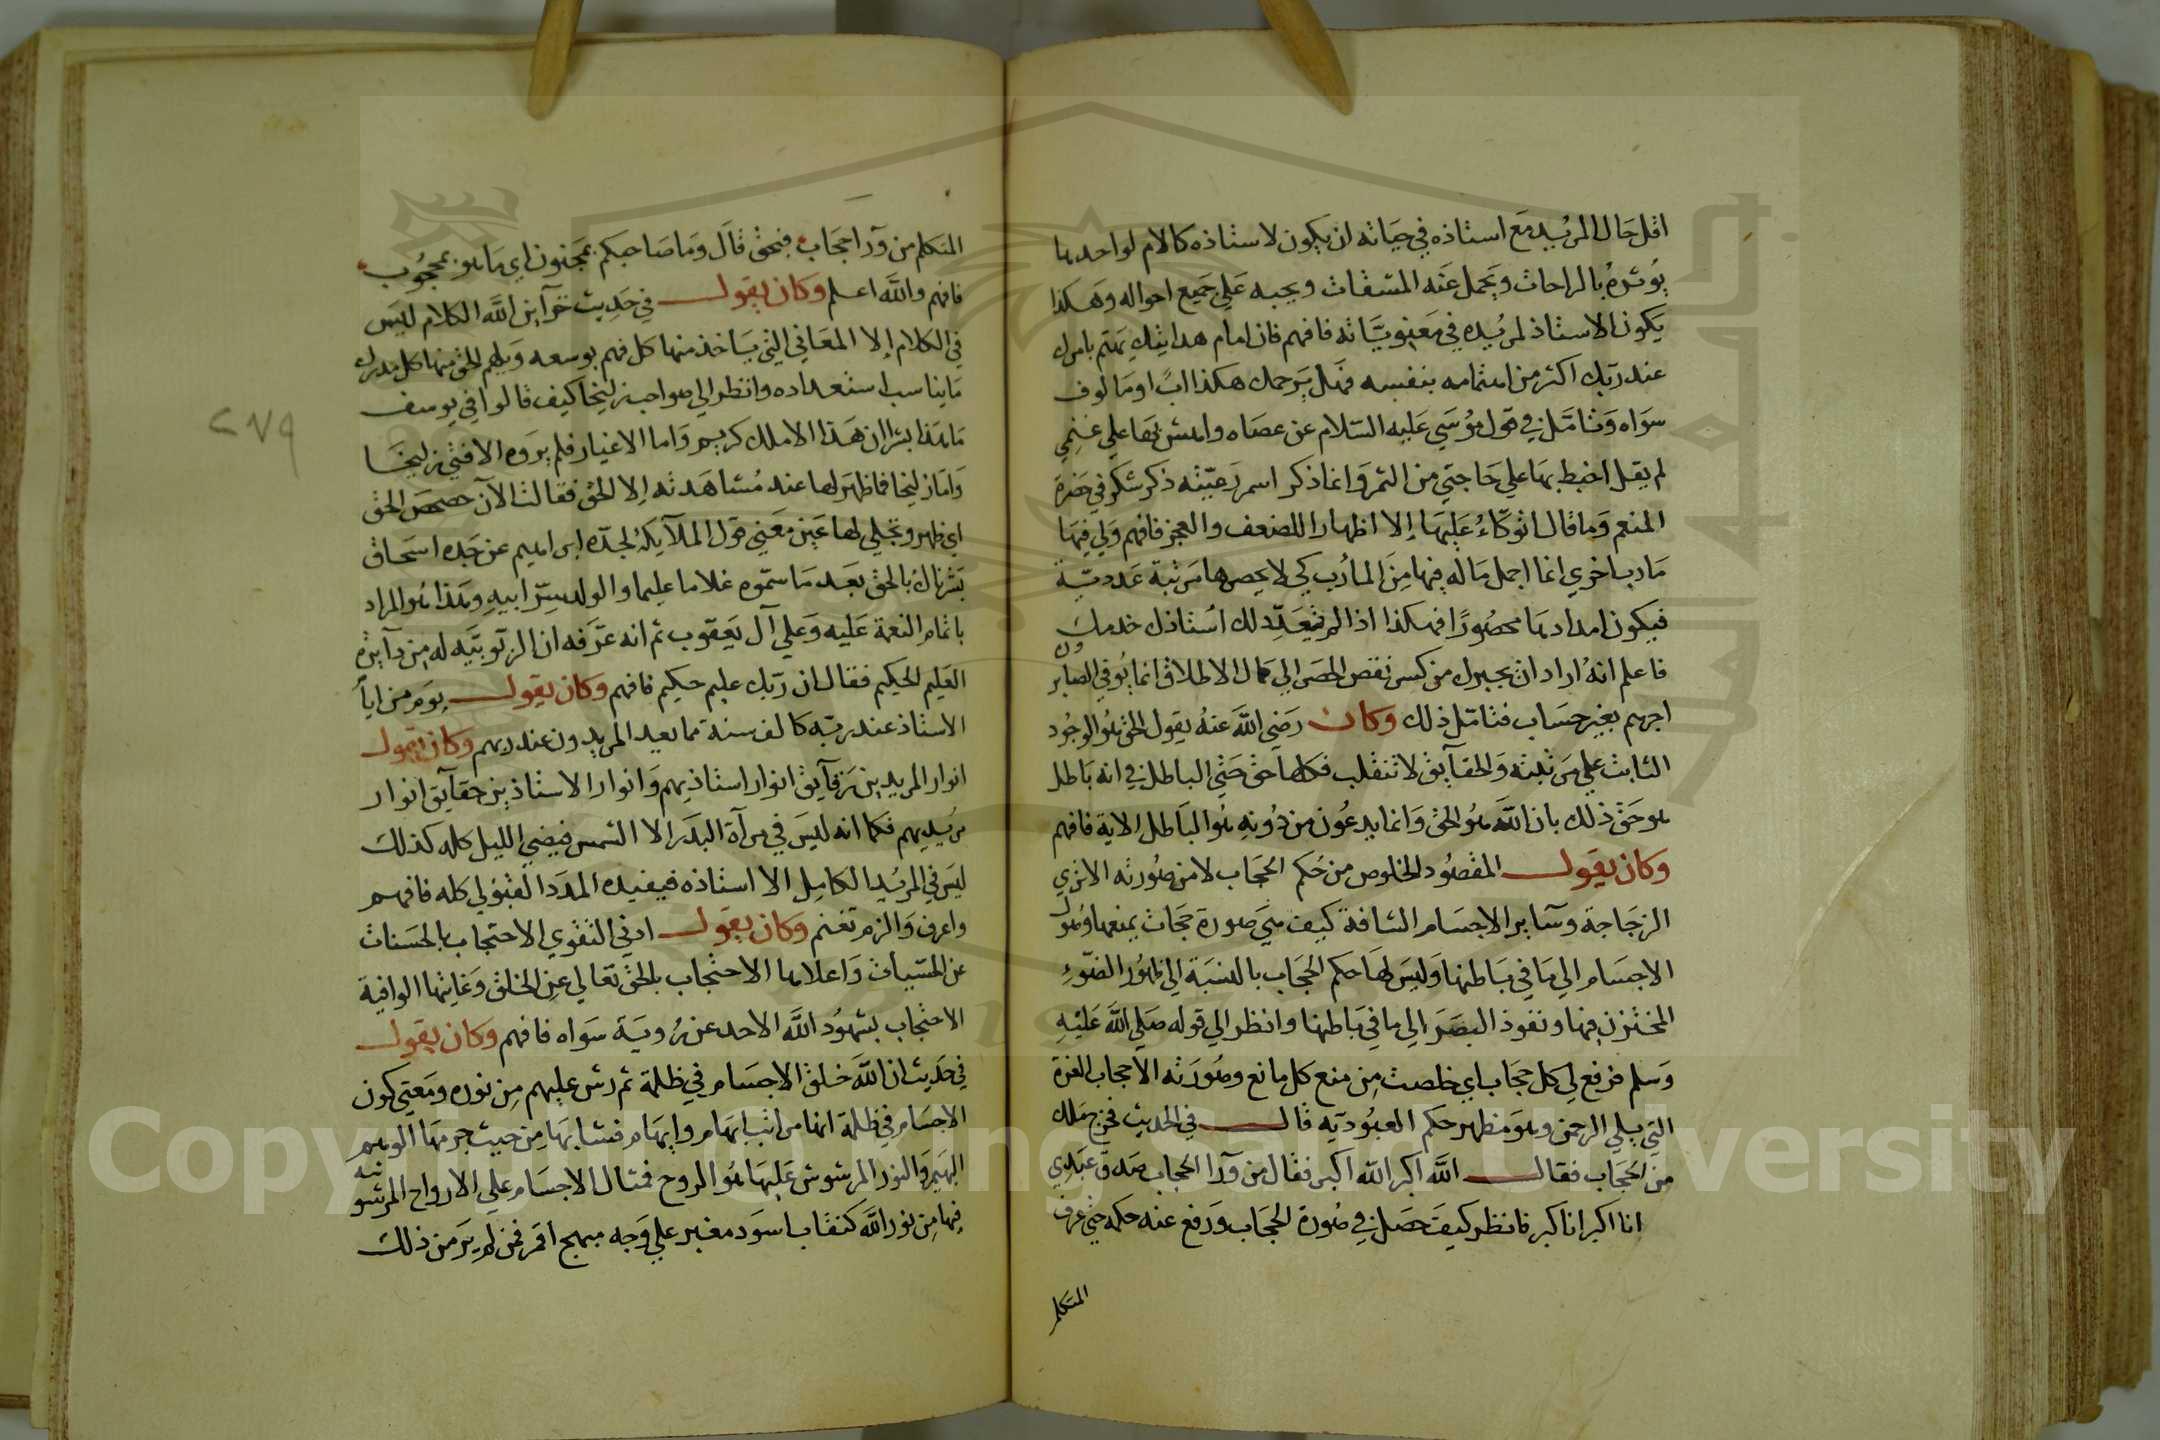 اقل حال المريد مع استاذه في حياته ان يكون لاستاذه كالام لواحدها
يوثره بالراحات ويحمل عنه المشقات ويحبه علي جميع احواله وهكذا
يكون الاستاذ لمريده في معنوياته فافهم فان امام هدايتك يهتم بامرك
عند ربك اكثر من اهتمامه بنفسه فهل يرحمك هكذا اب او مالوف
سواه وتامل في قول موسي عليه السلام عن عصاه واهش بها علي غنمي
لم يقل اخبط بها علي حاجتي من الثمر وانما ذكر اسم رعيته ذكر شكر في حضرة
المنعم وما قال اتوكاء عليها إلا اظهارا للضعف والعجز فافهم ولي فيها
مارب اخري انما اجمل ماله فيها من المارب كي لا يحصرها مرتبة عددية
فيكون امدادها محصورا فهكذا اذا لم يعدد لك استاذك خدمك
فاعلم انه اراد ان يجبرك من كسر نقص الحصر الي كمال الاطلاق انما يوفي الصابرون
اجرهم بغير حساب فتامل ذلك وكان رضي الله عنه يقول الحق هو الوجود
الثابت علي مرتبته والحقآيق لا تنقلب فكلها حق حتي الباطل في انه باطل
هو حق ذلك بان الله هو الحق وانما يدعون من دونه هو الباطل الاية فافهم
وكان يقول المقصود الخلوص من حكم الحجاب لا من صورته الا تري
الزجاجة وسآير الاجسام الشافة كيف هي صورة حجاب يمنعها وصول
الاجسام الي ما في باطنها وليس لها حكم الحجاب بالنسبة الي ظهور الضوء
المختزن فيها ونفوذ البصر الي ما في باطنها وانظر الي قوله صلي الله عليه
وسلم فرفع لي كل حجاب اي خلصت من منع كل مانع وصورته الا حجاب العزة
التي يلي الرحمن وهو مظهر حكم العبودية قال في الحديث فخرج ملك
من الحجاب فقال الله اكبر الله اكبر فقال من ورآ الحجاب صدق عبدي
انا اكبر انا كبر فانظر كيف حصل في صورة الحجاب ورفع عنه حكمه حتي عرف
المتكلم
المتكلم من ورآ احجاب فبحق قال وما صاحبكم بمجنون اي ما هو بمحجوب
فافهم والله اعلم وكان يقول في حديث خزآين الله الكلام ليس
في الكلام إلا المعاني التي ياخذ منها كل فهم بوسعه ويلهم الحق منها كل مدرك
ما يناسب استعداده وانظر الي صواحب زليخا كيف قالوا في يوسف
ما هذا بشرا ان هذا الا ملك كريم واما الاغيار فلم يروه الا فتي زليخا
واما زليخا فما ظهر لها عند مشاهدته إلا الحق فقالت الآن حصحص الحق
اي ظهر وتجلي لها عين معني قول الملآيكة لجده ابراهيم عن جده اسحاق
بشرناك بالحق بعد ما سموه غلاما عليما والولد سر ابيه وهذا هو المراد
باتمام النعمة عليه وعلي آل يعقوب ثم انه عرفه ان الربوبيه له من دآيرة
العليم الحكيم فقال ان ربك عليم حكيم فافهم وكان يقول يوم من ايام
الاستاذ عند ربه كالف سنة مما يعد المريدون عند ربهم وكان يقول
انوار المريدين رقآيق انوار استاذيهم وانوار الاستاذين حقآيق انوار
مريديهم فكما انه ليس في مرآة البدر الا الشمس فيضي الليل كله كذلك
ليس في المريد الكامل الا استاذه فيفيده المدد القبولي كله فافهم
واعرف والزم تغنم وكان يقول ادني التقوي الاحتجاب بالحسنات
عن السيات واعلاها الاحتجاب بالحق تعالي عن الخلق وغايتها الوافية
الاحتجاب بشهود الله الاحد عن روية سواه فافهم وكان يقول
في حديث ان الله خلق الاجسام في ظلمة ثم رش عليهم من نوره ومعني كون
الاجسام في ظلمة انها مراتب ابهام وايهام فشابهها من حيث جرمها الوهم
البهيم والنور المرشوش عليها هو الروح فمثال الاجسام علي الارواح المرشوشه
فيها من نور الله كنقاب اسود مغبر علي وجه مبهج اقمر فمن لم ير من ذلك
٢٧٩
Copyright © King Saud University